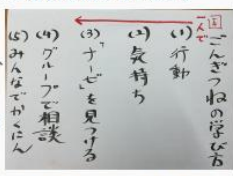 国 ごんぎつねの学び方
一人で
(1) 行動
(2) 気持ち
(3) 「ナーゼ」を見つける
(4) グループで相談
(5) みんなでかくにん